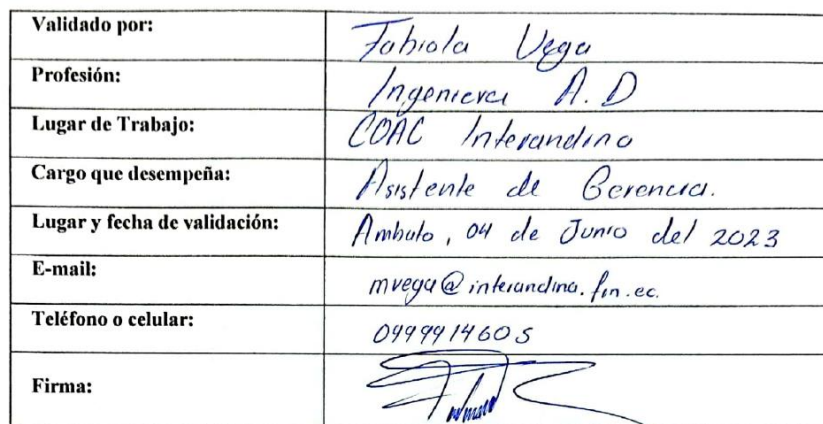 Validado por: Fabiola Vega
Profesión: Ingeniera A.D
Lugar de Trabajo: COAC Interandina
Cargo que desempeña: Asistente de Gerencia.
Lugar y fecha de validación: Ambato, 04 de Junio del 2023
E-mail: mvega@interandina.fin.ec.
Teléfono o celular: 0999914605
Firma: